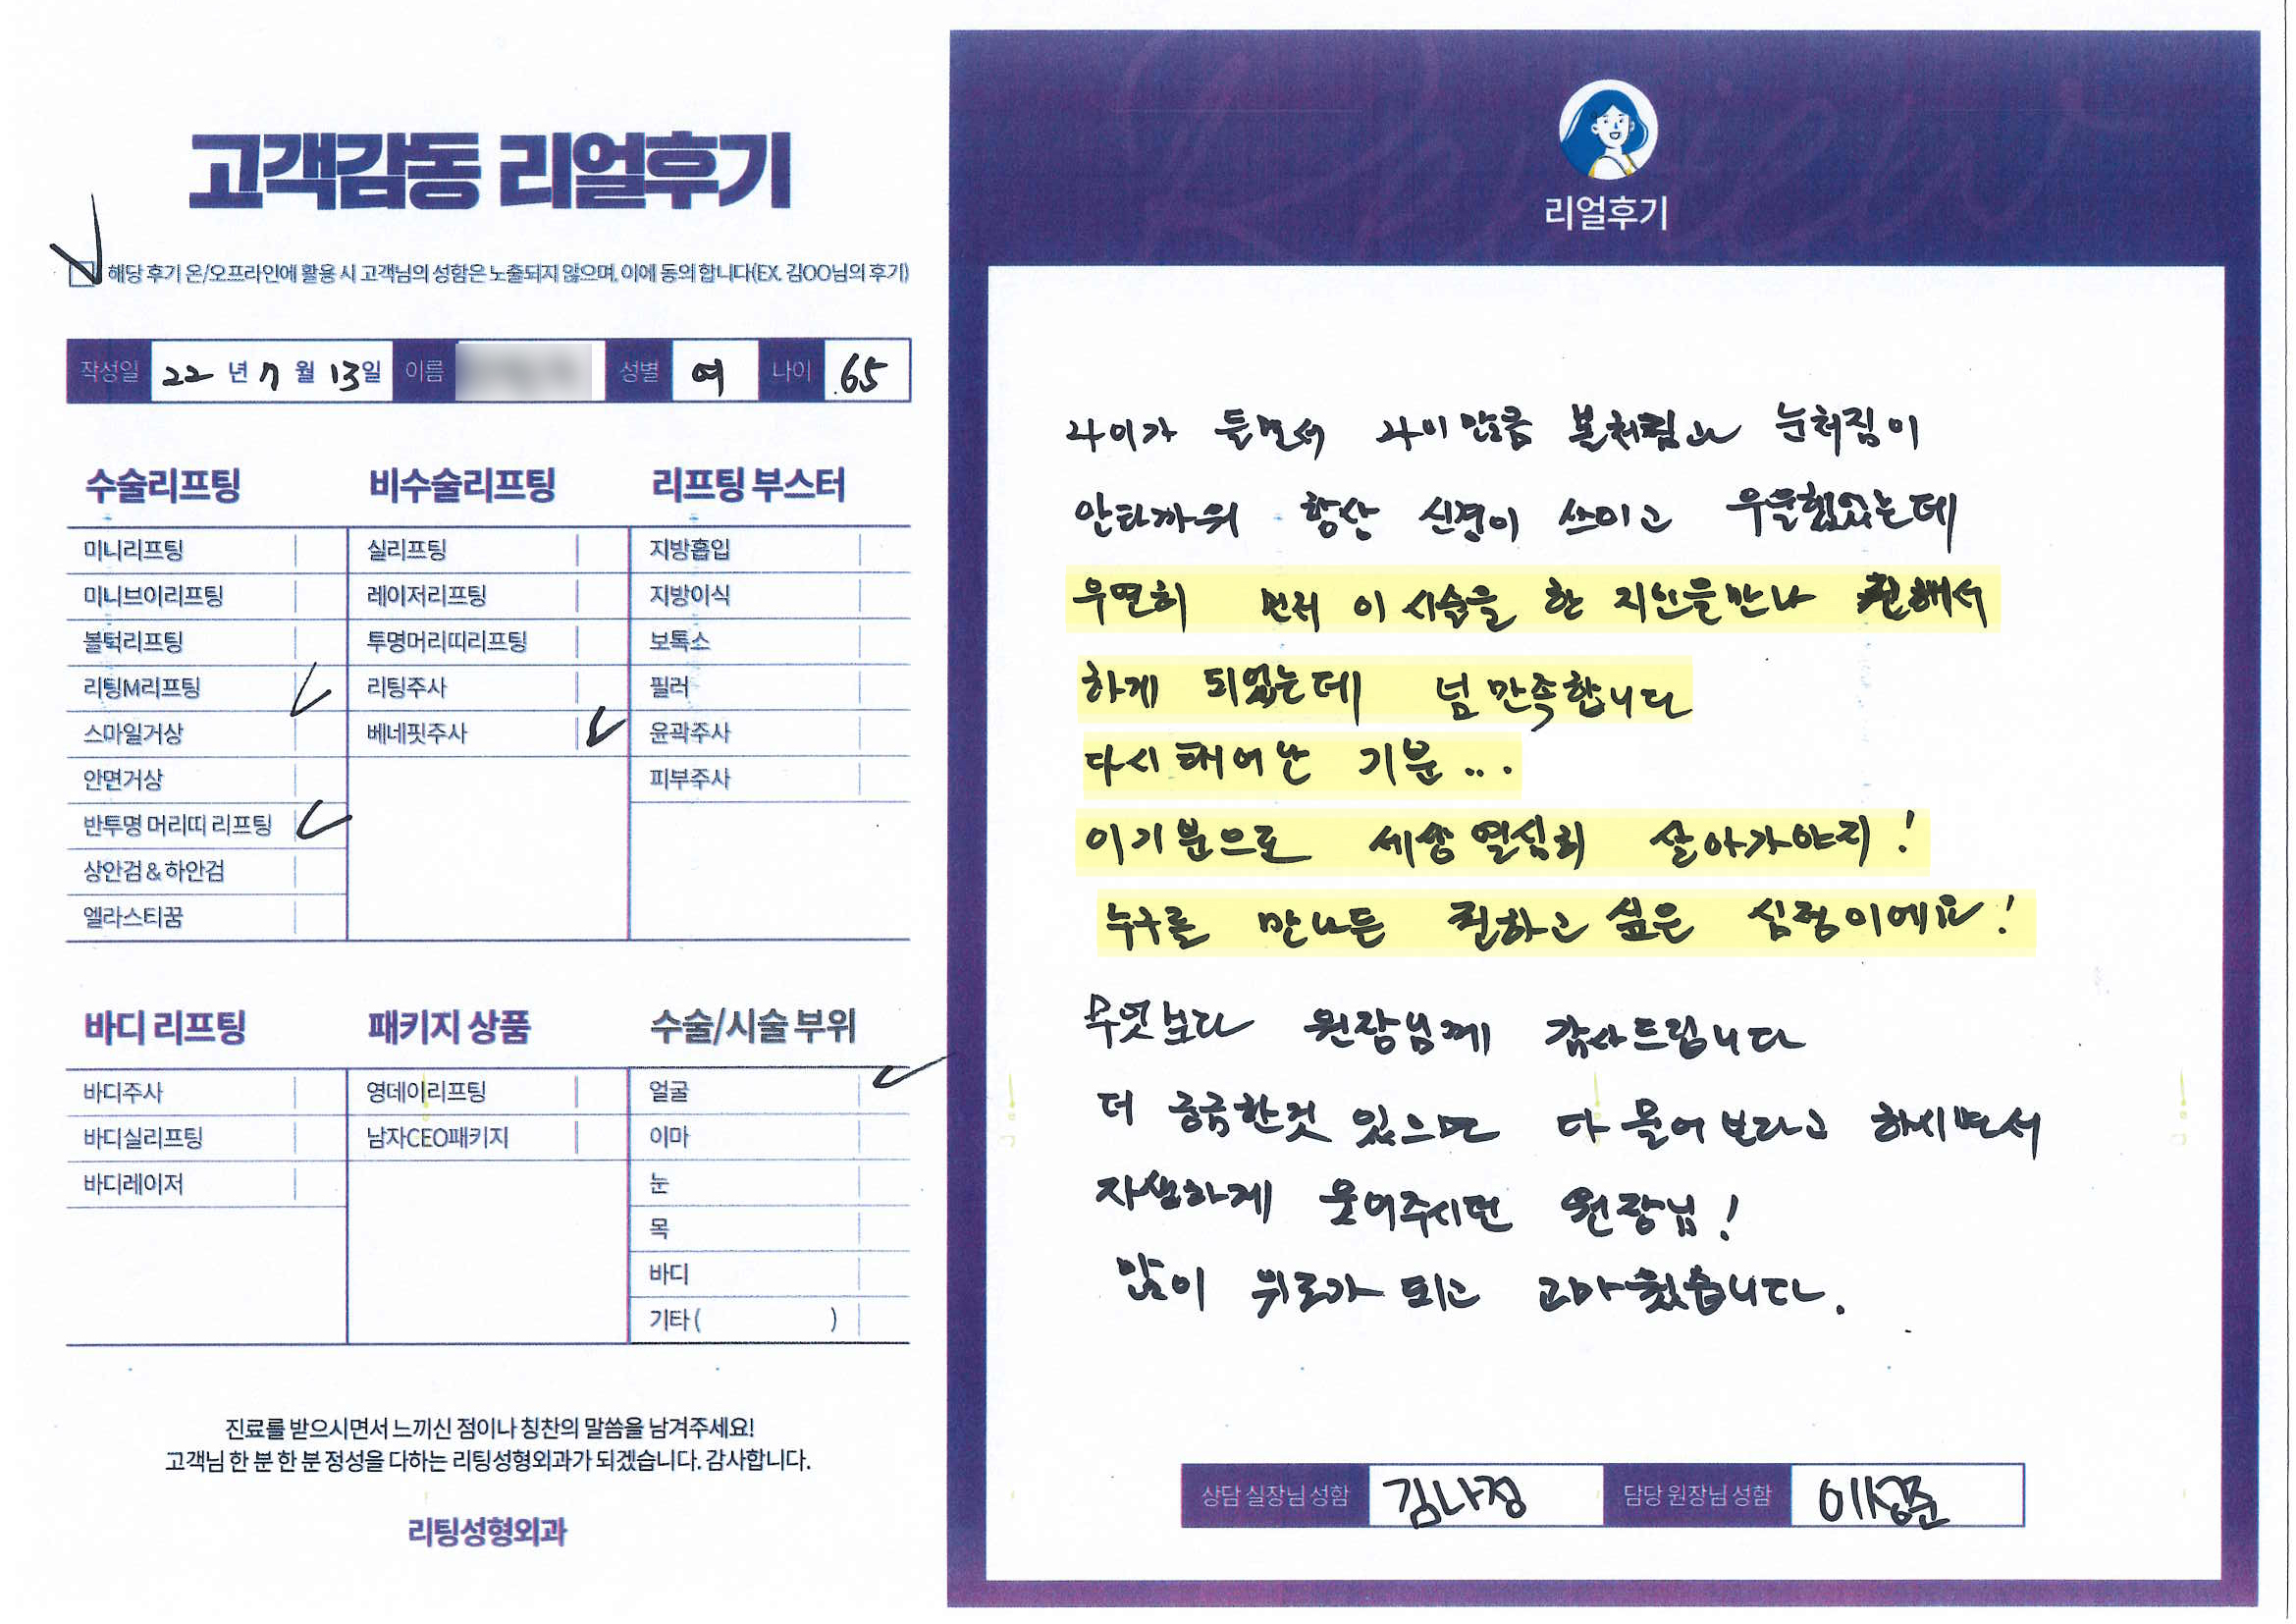 고객감동 리얼후기
해당 후기 온/오프라인에 활용 시 고객님의 성함은 노출되지 않으며, 이에 동의 합니다(EX. 김OO님의 후기)
작성일 22 년 7 월 13일 이름 성별 여 나이 65
수술리프팅
미니리프팅
미니브이리프팅
볼턱리프팅
리팅M리프팅
스마일거상
안면거상
반투명 머리띠 리프팅
상안검 & 하안검
엘라스티꿈
비수술리프팅
실리프팅
레이저리프팅
투명머리띠리프팅
리팅주사
베네핏주사
리프팅 부스터
지방흡입
지방이식
보톡스
필러
윤곽주사
피부주사
바디 리프팅
바디주사
바디실리프팅
바디레이저
패키지 상품
영데이리프팅
남자CEO패키지
수술/시술 부위
얼굴
이마
눈
목
바디
기타 ( )
진료를 받으시면서 느끼신 점이나 칭찬의 말씀을 남겨주세요!
고객님 한 분 한 분 정성을 다하는 리팅성형외과가 되겠습니다. 감사합니다.
리팅성형외과
리얼후기
나이가 들면서 나이만큼 볼처짐과 눈처짐이
안타까워 항상 신경이 쓰이고 우울했었는데
우연히 먼저 이 시술을 한 지인을만나 권해서
하게 되었는데 넘 만족합니다
다시 태어난 기분...
이기분으로 세상 열심히 살아가야지!
누구를 만나든 권하고 싶은 심정이에요!
무엇보다 원장님께 감사드립니다
더 궁금한것 있으면 다 물어보라고 하시면서
자상하게 웃어주시던 원장님!
많이 위로가 되고 고마웠습니다.
상담 실장님 성함 김나정 담당 원장님 성함